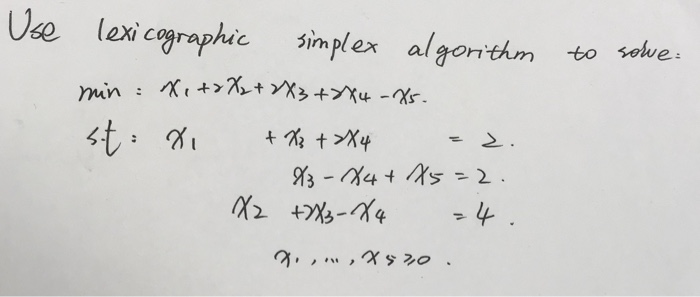 Use lexicographic simplex algorithm to solve:
min : x₁ +2x₂+2x₃+2x₄ -x₅.
s.t : x₁ + x₃ +2x₄ = 2.
x₃ - x₄ + x₅ = 2.
x₂ +2x₃-x₄ = 4.
x₁, ..., x₅ ≥0.